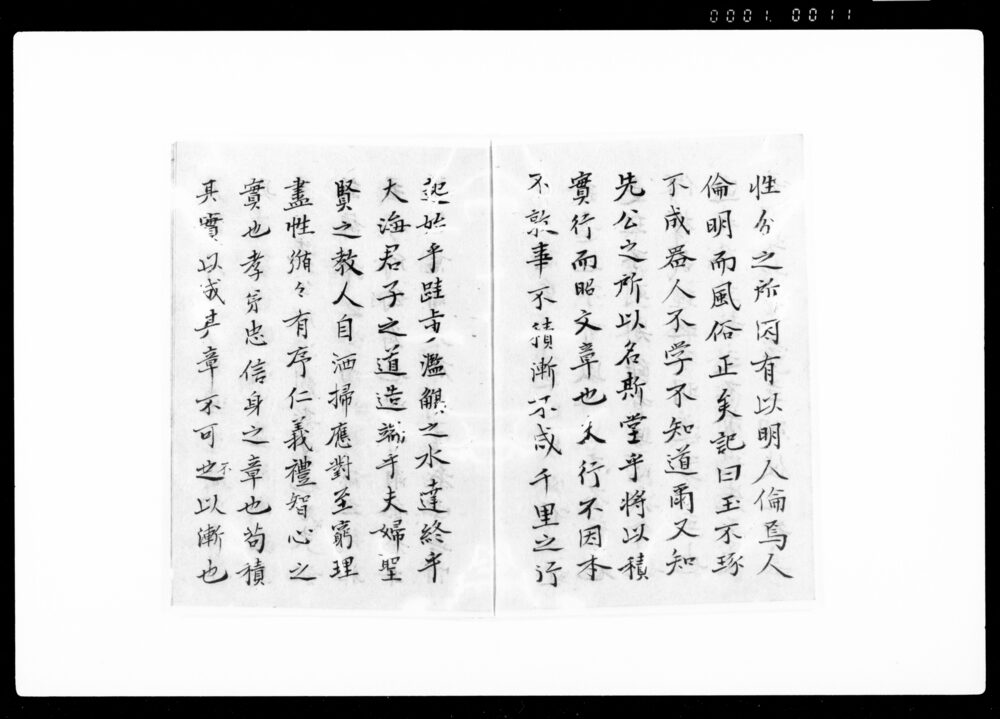 0001 0011
性分之所固有以明人倫焉人
倫明而風俗正矣記曰玉不琢
不成器人不学不知道爾又知
先公之所以名斯堂乎將以積
實行而昭文章也夫行不因本
不敦事不積漸不成千里之行
起始乎跬步濫觴之水達終乎
大海君子之道造端乎夫婦聖
賢之教人自洒掃應對至窮理
盡性循々有序仁義禮智心之
實也孝弟忠信身之章也苟積
其實以成其章不可不以漸也